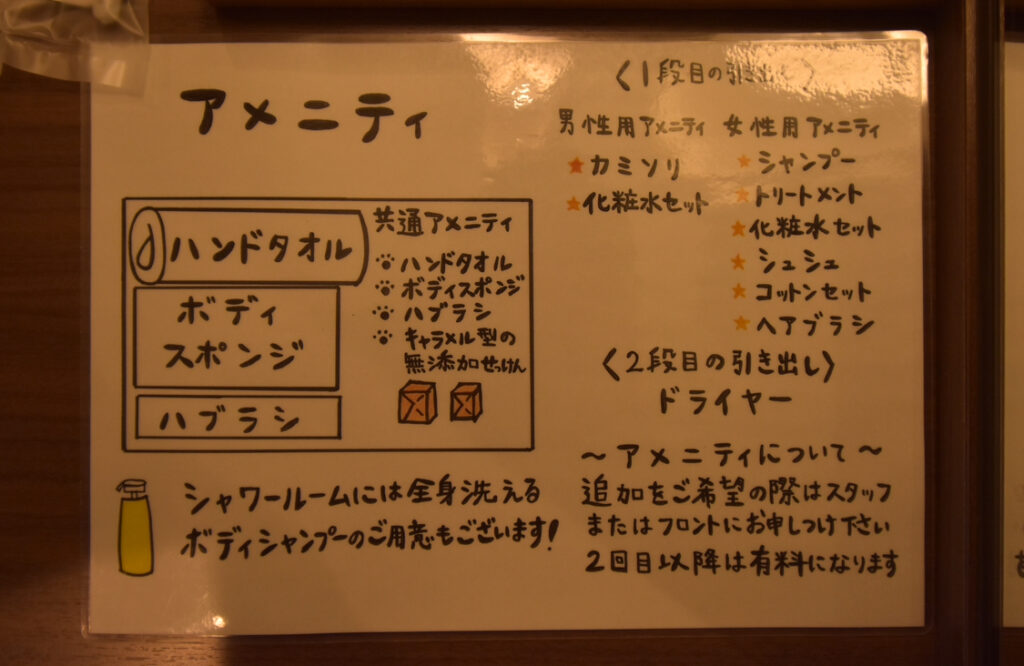 アメニティ
ハンドタオル
ボディ
スポンジ
ハブラシ
共通アメニティ
ハンドタオル
ボディスポンジ
ハブラシ
キャラメル型の
無添加せっけん
シャワールームには全身洗える
ボディシャンプーのご用意もございます!
〈1段目の引き出し〉
男性用アメニティ
★カミソリ
★化粧水セット
女性用アメニティ
★シャンプー
★トリートメント
★化粧水セット
★シュシュ
★コットンセット
★ヘアブラシ
〈2段目の引き出し〉
ドライヤー
～アメニティについて～
追加をご希望の際はスタッフ
またはフロントにお申しつけ下さい
2回目以降は有料になります